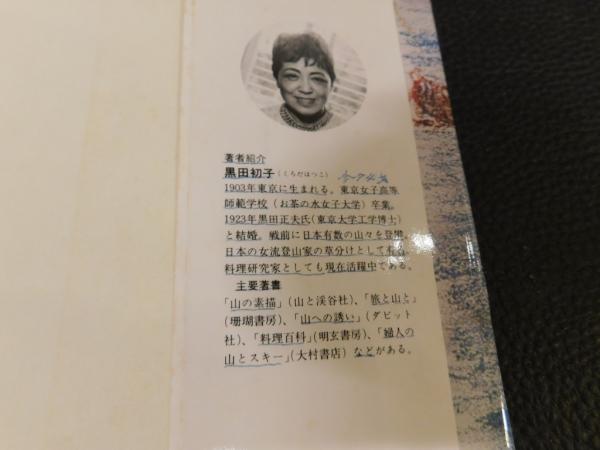 著者紹介
黒田初子(くろだはつこ)
1903年東京に生まれる。東京女子高等
師範学校(お茶の水女子大学)卒業。
1923年黒田正夫氏(東京大学工学博士)
と結婚。戦前に日本有数の山々を登
日本の女流登山家の草分けとして有
料理研究家としても現在活躍中である。
主要著書
「山の素描」(山と渓谷社)、「旅と山と」
(珊瑚書房)、「山への誘い」(ダビット
社)、「料理百科」(明玄書房)、「婦人の
山とスキー」(大村書店)などがある。